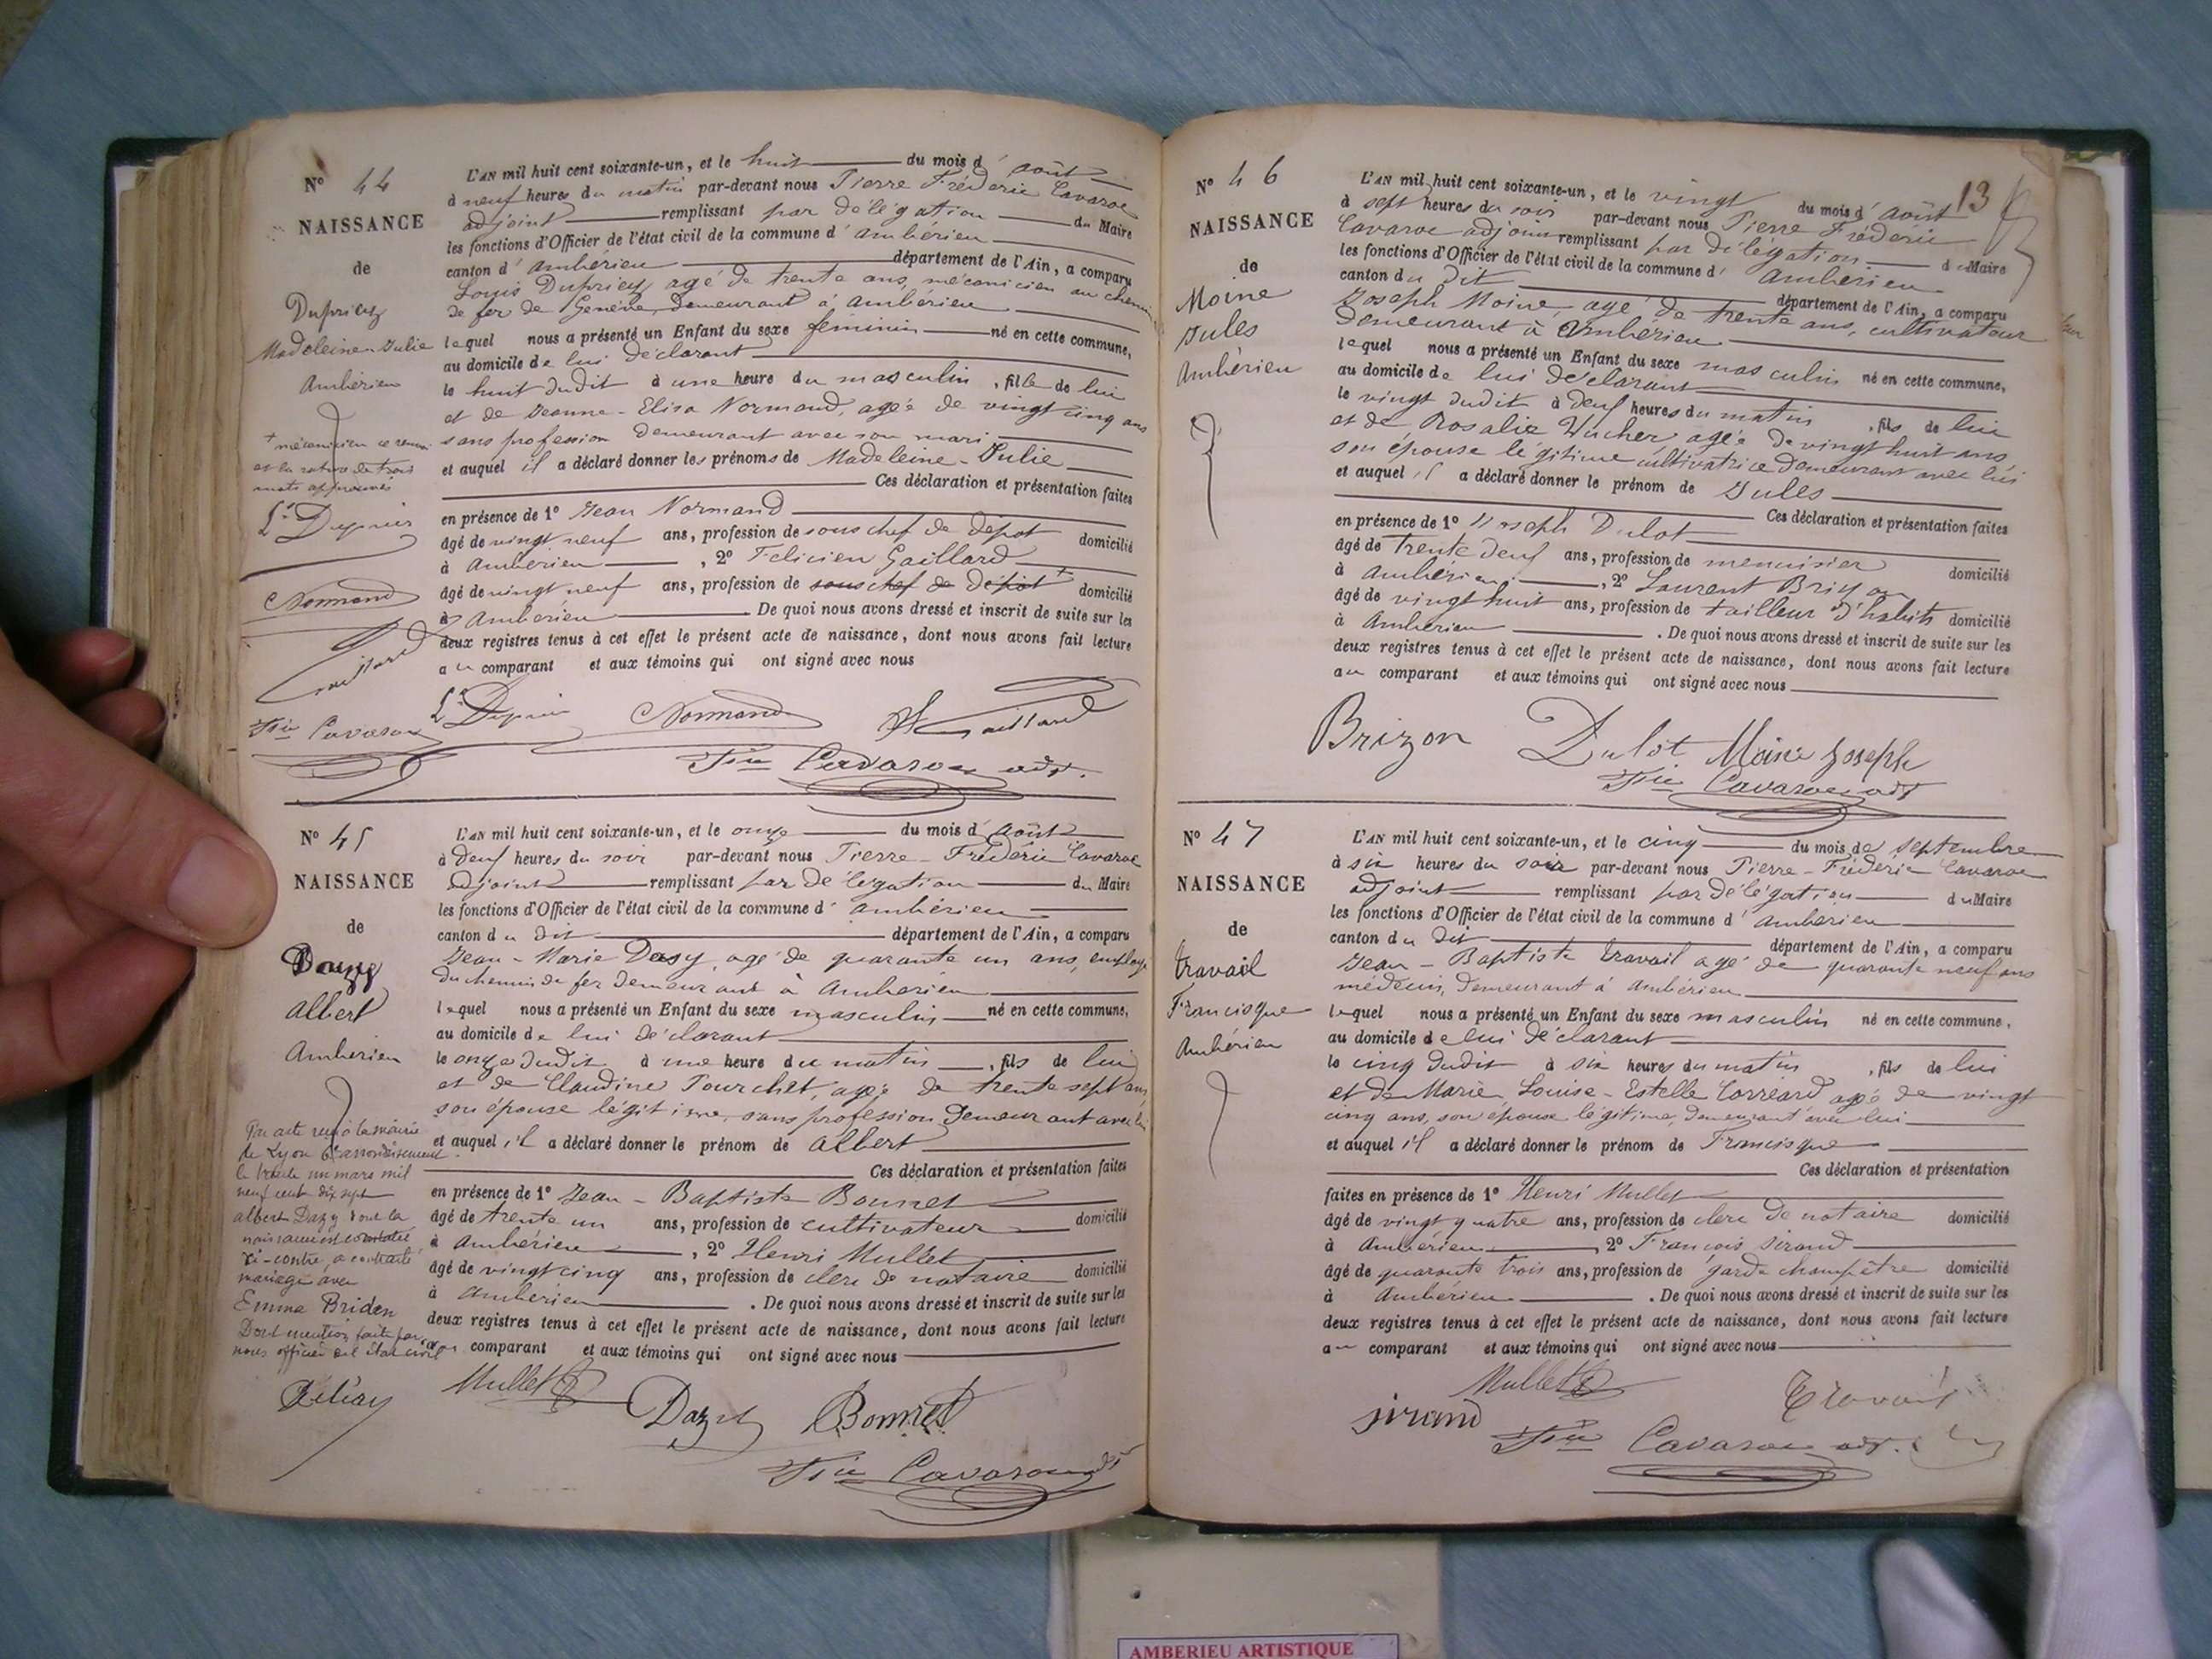 N° 44
NAISSANCE
de
Dupriez
Madeleine-Julie
Ambérieu
+ mécanicien ce renvoi
et la rature de trois
mots approuvés
Ls Dupriez
Normand
Gaillard
Fric Cavaroc
L'AN mil huit cent soixante-un, et le huit du mois d'août
à neuf heures du matin par-devant nous Pierre Fréderic Cavaroc
adjoint remplissant par délégation du Maire
les fonctions d'Officier de l'état civil de la commune d'Ambérieu
canton d'Ambérieu département de l'Ain, a comparu
Louis Dupriez, agé de trente ans, mécanicien au chemin
de fer de Genève, demeurant à Ambérieu
lequel nous a présenté un Enfant du sexe féminin né en cette commune,
au domicile de lui déclarant
le huit dudit à une heure du masculin, fille de lui
et de Jeanne-Elisa Normand, agée de vingt cinq ans
sans profession demeurant avec son mari
et auquel il a déclaré donner les prénoms de Madeleine-Julie
Ces déclaration et présentation faites
en présence de 1° Jean Normand
âgé de vingt neuf ans, profession de sous chef de dépot domicilié
à Ambérieu, 2° Felicien Gaillard
âgé de vingt neuf ans, profession de sous chef de dépot + domicilié
à Ambérieu. De quoi nous avons dressé et inscrit de suite sur les
deux registres tenus à cet effet le présent acte de naissance, dont nous avons fait lecture
au comparant et aux témoins qui ont signé avec nous
Ls Dupriez Normand Gaillard
Fric Cavaroc adt.
N° 45
NAISSANCE
de
Dazy
Albert
Ambérieu
Par acte reçu à la mairie
de Lyon 6e arrondissement
le trente un mars mil
neuf cent dix sept
albert Dazy dont la
naissance est constatée
ci-contre, a contracté
mariage avec
Emma Briden
Dont mention faite par
nous officier de l'état civil
L'AN mil huit cent soixante-un, et le onze du mois d'Août
à deux heures du soir par-devant nous Pierre-Fréderic Cavaroc
adjoint remplissant par délégation du Maire
les fonctions d'Officier de l'état civil de la commune d'Ambérieu
canton du dit département de l'Ain, a comparu
Jean-Marie Dazy, agé de quarante un ans, employé
du chemin de fer demeurant à Ambérieu
lequel nous a présenté un Enfant du sexe masculin né en cette commune,
au domicile de lui déclarant
le onze dudit à une heure du matin, fils de lui
et de Claudine Pourchet, agée de trente sept ans
son épouse légitime, sans profession demeurant avec lui
et auquel il a déclaré donner le prénom de Albert
Ces déclaration et présentation faites
en présence de 1° Jean-Baptiste Bonnet
âgé de trente un ans, profession de cultivateur domicilié
à Ambérieu, 2° Henri Mullet
âgé de vingt cinq ans, profession de clerc de notaire domicilié
à Ambérieu. De quoi nous avons dressé et inscrit de suite sur les
deux registres tenus à cet effet le présent acte de naissance, dont nous avons fait lecture
au comparant et aux témoins qui ont signé avec nous
Mullet Dazy Bonnet
Fric Cavaroc adt
13
N° 46
NAISSANCE
de
Moine
Jules
Ambérieu
L'AN mil huit cent soixante-un, et le vingt du mois d'Août
à sept heures du soir par-devant nous Pierre Fréderic
Cavaroc adjoint remplissant par délégation du Maire
les fonctions d'Officier de l'état civil de la commune d'Ambérieu
canton du dit département de l'Ain, a comparu
Joseph Moine, agé de trente ans, cultivateur
demeurant à Ambérieu
lequel nous a présenté un Enfant du sexe masculin né en cette commune,
au domicile de lui déclarant
le vingt dudit à deux heures du matin, fils de lui
et de Rosalie Wucher agée de vingt huit ans
son épouse légitime cultivatrice demeurant avec lui
et auquel il a déclaré donner le prénom de Jules
Ces déclaration et présentation faites
en présence de 1° Joseph Dulot
âgé de trente deux ans, profession de menuisier domicilié
à Ambérieu, 2° Laurent Brizon
âgé de vingt huit ans, profession de tailleur d'habits domicilié
à Ambérieu. De quoi nous avons dressé et inscrit de suite sur les
deux registres tenus à cet effet le présent acte de naissance, dont nous avons fait lecture
au comparant et aux témoins qui ont signé avec nous
Brizon Dulot Moine Joseph
Fric Cavaroc adt
N° 47
NAISSANCE
de
Travail
Francisque
Ambérieu
L'AN mil huit cent soixante-un, et le cinq du mois de septembre
à six heures du soir par-devant nous Pierre-Fréderic Cavaroc
adjoint remplissant par délégation du Maire
les fonctions d'Officier de l'état civil de la commune d'Ambérieu
canton du dit département de l'Ain, a comparu
Jean-Baptiste Travail agé de quarante neuf ans
médecin, demeurant à Ambérieu
lequel nous a présenté un Enfant du sexe masculin né en cette commune,
au domicile de lui déclarant
le cinq dudit à six heures du matin, fils de lui
et de Marie Louise-Estelle Corréard agée de vingt
cinq ans, son épouse légitime, demeurant avec lui
et auquel il a déclaré donner le prénom de Francisque
Ces déclaration et présentation
faites en présence de 1° Henri Mullet
âgé de vingt quatre ans, profession de clerc de notaire domicilié
à Ambérieu, 2° François Sirand
âgé de quarante trois ans, profession de garde champêtre domicilié
à Ambérieu. De quoi nous avons dressé et inscrit de suite sur les
deux registres tenus à cet effet le présent acte de naissance, dont nous avons fait lecture
au comparant et aux témoins qui ont signé avec nous
Mullet Travail
sirand
Fric Cavaroc adt.
AMBERIEU ARTISTIQUE